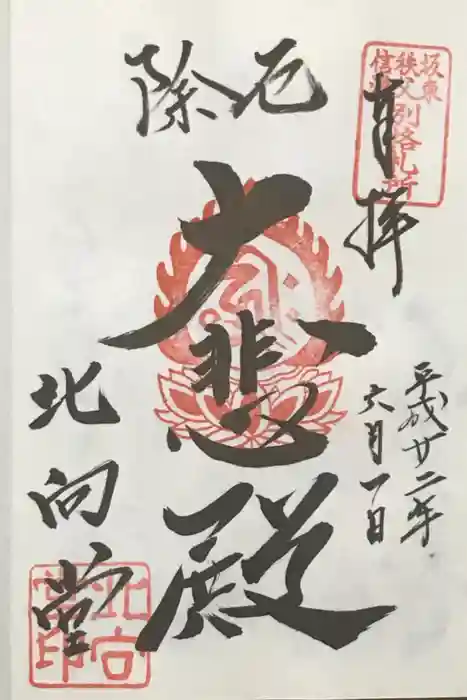 厄除
坂東
秩父
信州
別格札所
奉拝
平成廿二年
六月一日
大悲殿
北向堂
北向
堂印